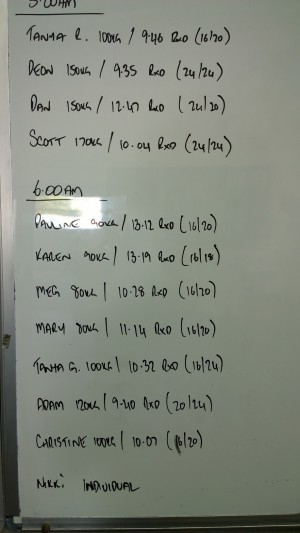 5:00AM
TANYA R. 100KG / 9.46 RXD (16/20)
DEON 150KG / 9.35 RXD (24/24)
DAN 150KG / 12.47 RXD (24/20)
SCOTT 120KG / 10.04 RXD (24/24)
6:00AM
PAULINE 90KG / 13.12 RXD (16/20)
KAREN 90KG / 13.19 RXD (16/18)
MEG 80KG / 10.28 RXD (16/20)
MARY 80KG / 11.14 RXD (16/20)
TANYA G. 100KG / 10.32 RXD (16/24)
ADAM 120KG / 9.40 RXD (20/24)
CHRISTINE 100KG / 10.07 (16/20)
NIKKI INDIVIDUAL